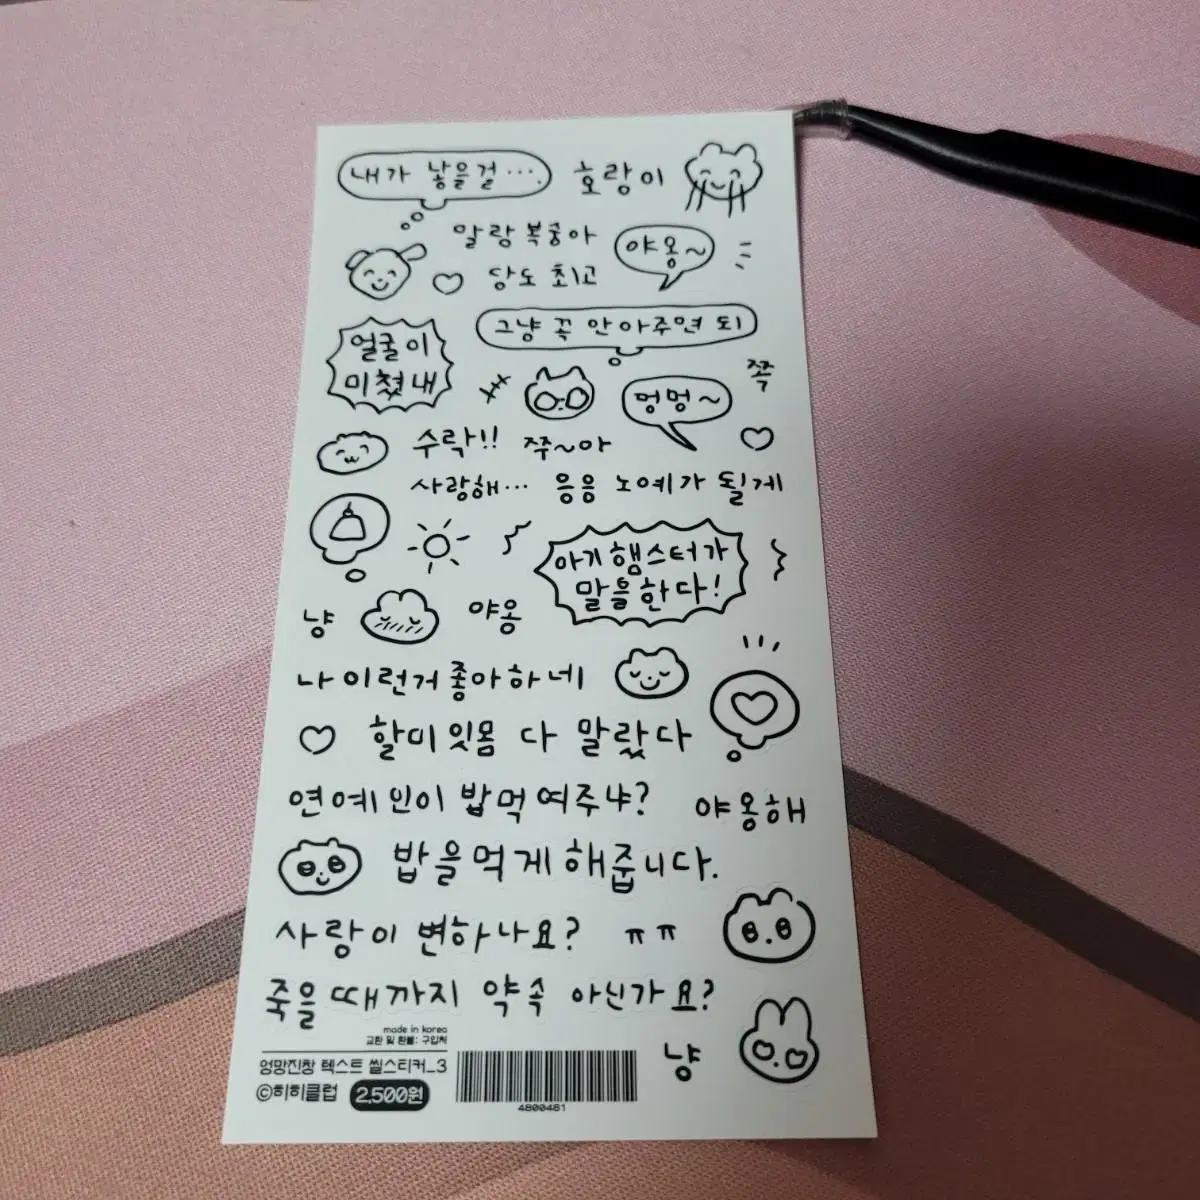 내가 낳을걸....
호랑이
말랑복숭아
당도 최고
야옹~
그냥 꼭 안아주면 되
얼굴이
미쳤내
쪽
멍멍~
수락!!
쭈~아
사랑해...
응응 노예가 될게
아기햄스터가
말을한다!
냥
야옹
나이런거좋아하네
할미잇몸 다 말랐다
연예인이 밥먹여주냐?
야옹해
밥을먹게해줍니다.
사랑이 변하나요?
ㅠㅠ
죽을때까지 약속 아닌가요?
냥
made in korea
교환 및 환불: 구입처
엉망진창 텍스트 씰스티커_3
©히히클럽
2,500원
4800461